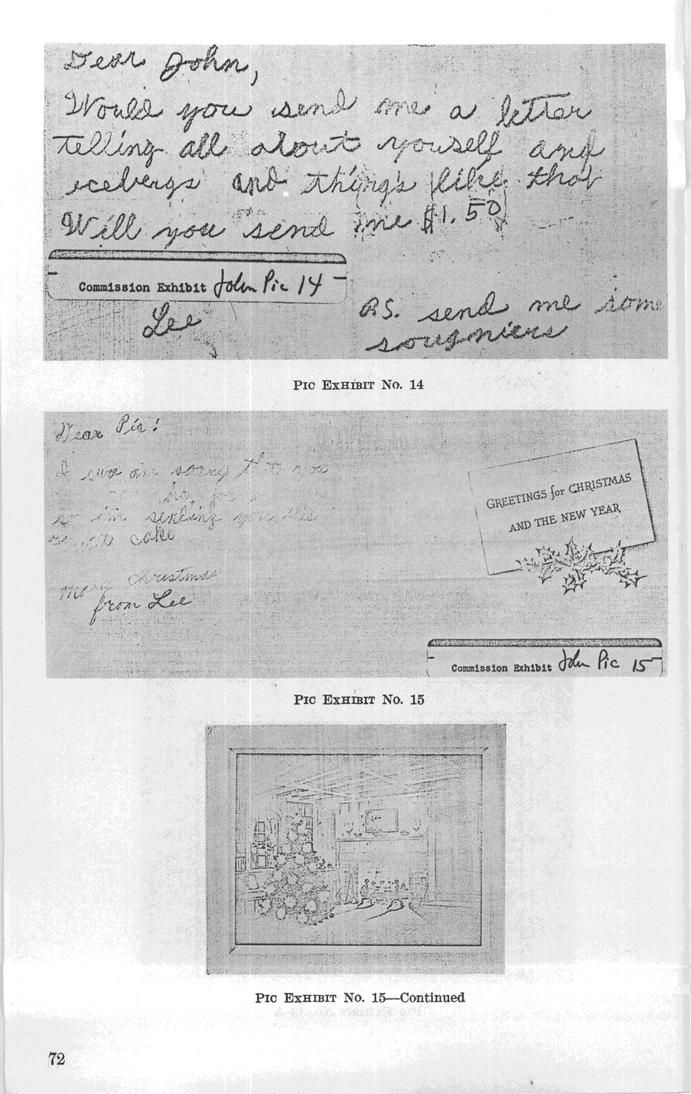 Dear John,
Would you send me a letter
telling all about youself and
icebergs and things like that
Will you send me $1.50
Commission Exhibit John Pic 14
Lee
P.S. send me some
sougniers
PIC EXHIBIT No. 14
Dear Pic!
I am sorry that you
so i'm sending you this
cake
Merry Christmas
from Lee
GREETINGS for CHRISTMAS
AND THE NEW YEAR
Commission Exhibit John Pic 15
PIC EXHIBIT No. 15
PIC EXHIBIT No. 15—Continued
72